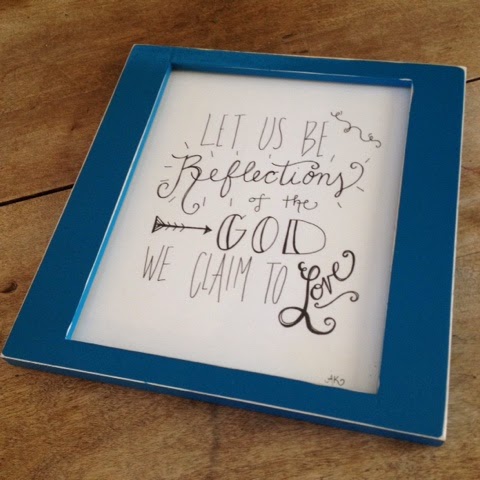 LET US BE
Reflections
of the
GOD
WE CLAIM TO Love
AK